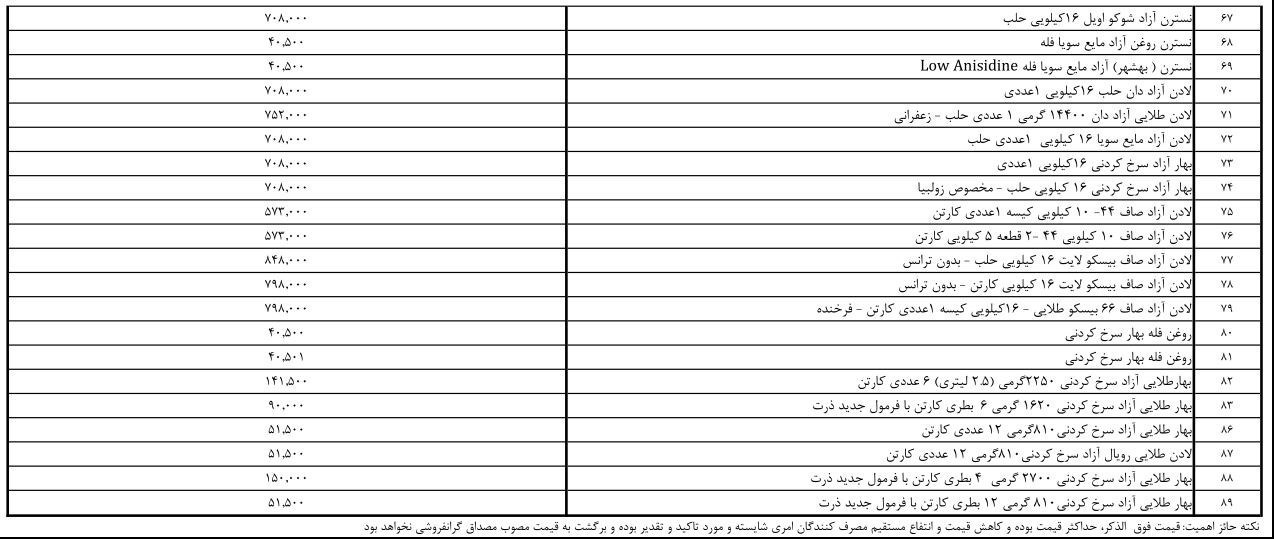 ۶۷ نسترن آزاد شوکو اویل ۱۶کیلویی حلب ۷۰۸,۰۰۰
۶۸ نسترن روغن آزاد مایع سویا فله ۴۰,۵۰۰
۶۹ نسترن ( بهشهر) آزاد مایع سویا فله Low Anisidine ۴۰,۵۰۰
۷۰ لادن آزاد دان حلب ۱۶کیلویی ۱عددی ۷۰۸,۰۰۰
۷۱ لادن طلایی آزاد دان ۱۴۴۰۰ گرمی ۱ عددی حلب - زعفرانی ۷۵۲,۰۰۰
۷۲ لادن آزاد مایع سویا ۱۶ کیلویی ۱عددی حلب ۷۰۸,۰۰۰
۷۳ بهار آزاد سرخ کردنی ۱۶کیلویی ۱عددی ۷۰۸,۰۰۰
۷۴ بهار آزاد سرخ کردنی ۱۶ کیلویی حلب - مخصوص زولبیا ۷۰۸,۰۰۰
۷۵ لادن آزاد صاف ۴۴- ۱۰ کیلویی کیسه ۱عددی کارتن ۵۷۳,۰۰۰
۷۶ لادن آزاد صاف ۱۰ کیلویی ۴۴ -۲ قطعه ۵ کیلویی کارتن ۵۷۳,۰۰۰
۷۷ لادن آزاد صاف بیسکو لایت ۱۶ کیلویی حلب - بدون ترانس ۸۴۸,۰۰۰
۷۸ لادن آزاد صاف بیسکو لایت ۱۶ کیلویی کارتن - بدون ترانس ۷۹۸,۰۰۰
۷۹ لادن آزاد صاف ۶۶ بیسکو طلایی - ۱۶کیلویی کیسه ۱عددی کارتن - فرخنده ۷۹۸,۰۰۰
۸۰ روغن فله بهار سرخ کردنی ۴۰,۵۰۰
۸۱ روغن فله بهار سرخ کردنی ۴۰,۵۰۱
۸۲ بهارطلایی آزاد سرخ کردنی ۲۲۵۰گرمی (۲.۵ لیتری) ۶ عددی کارتن ۱۴۱,۵۰۰
۸۳ بهار طلایی آزاد سرخ کردنی ۱۶۲۰ گرمی ۶ بطری کارتن با فرمول جدید ذرت ۹۰,۰۰۰
۸۶ بهار طلایی آزاد سرخ کردنی۸۱۰گرمی ۱۲ عددی کارتن ۵۱,۵۰۰
۸۷ لادن طلایی رویال آزاد سرخ کردنی۸۱۰گرمی ۱۲ عددی کارتن ۵۱,۵۰۰
۸۸ بهار طلایی آزاد سرخ کردنی ۲۷۰۰ گرمی ۴ بطری کارتن با فرمول جدید ذرت ۱۵۰,۰۰۰
۸۹ بهار طلایی آزاد سرخ کردنی۸۱۰ گرمی ۱۲ بطری کارتن با فرمول جدید ذرت ۵۱,۵۰۰
نکته حائز اهمیت: قیمت فوق الذکر، حداکثر قیمت بوده و کاهش قیمت و انتفاع مستقیم مصرف کنندگان امری شایسته و مورد تاکید و تقدیر بوده و برگشت به قیمت مصوب مصداق گرانفروشی نخواهد بود